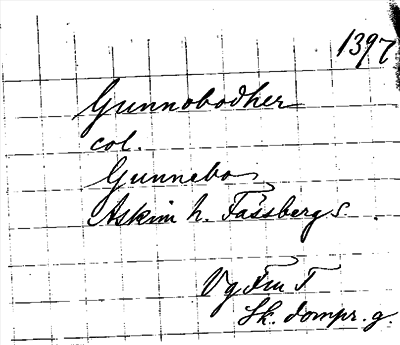 1397
Gunnobodher
col.
Gunnebo
Askim h. Fässbergs
Vg Fm T
Sk. dompr. g.